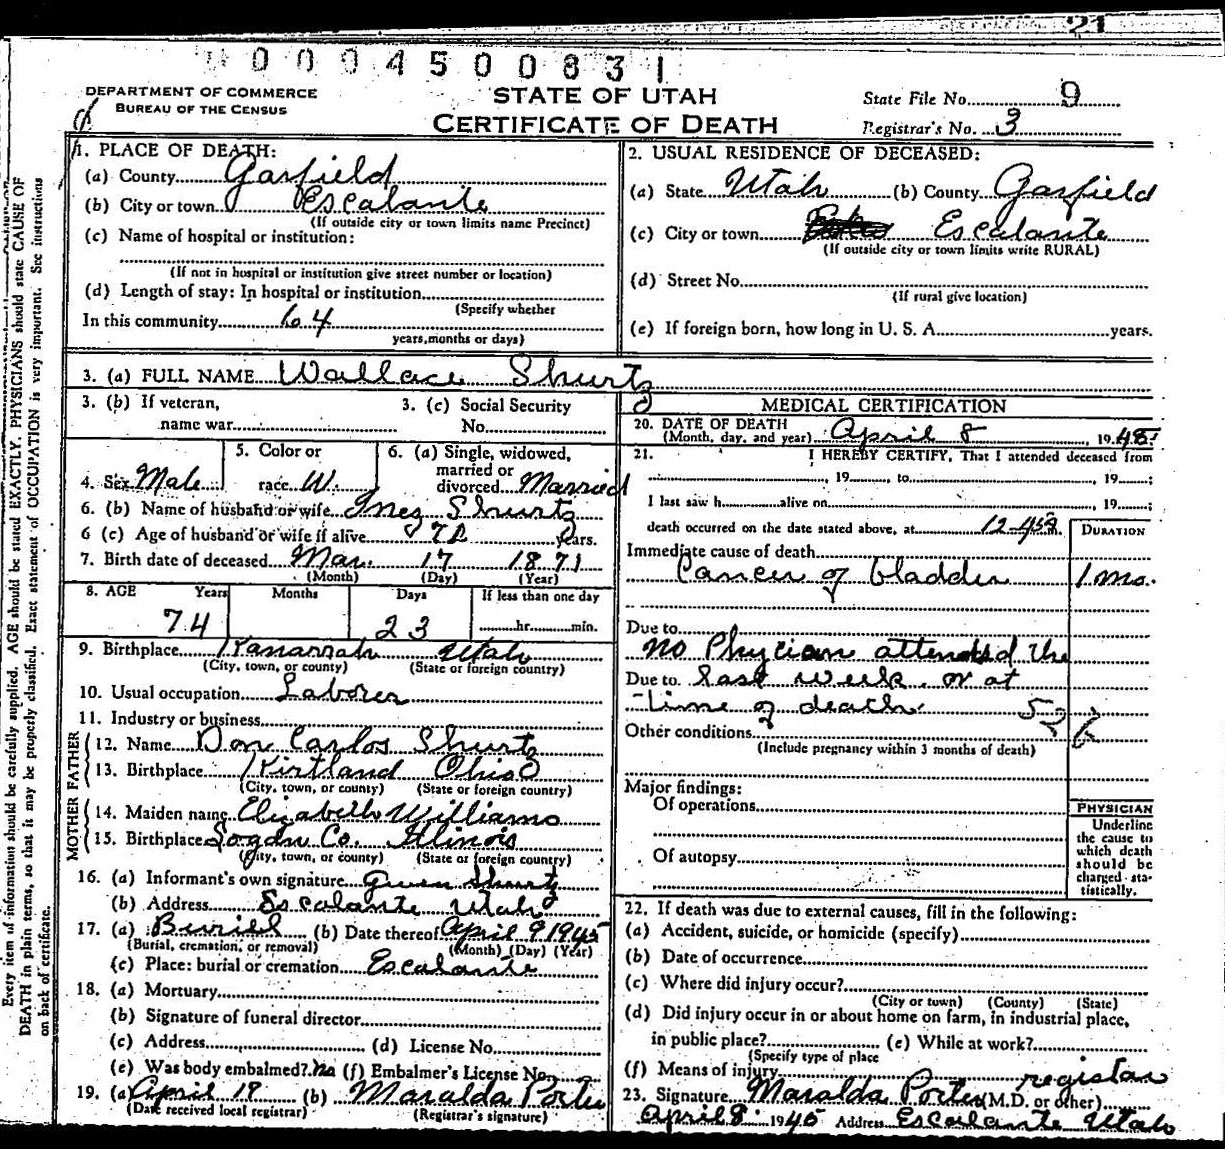 21
0 0 0 4 5 0 0 8 3 1
DEPARTMENT OF COMMERCE
BUREAU OF THE CENSUS
STATE OF UTAH
CERTIFICATE OF DEATH
State File No. 9
Registrar's No. 3
Every item of information should be carefully supplied. AGE should be stated EXACTLY. PHYSICIANS should state CAUSE OF
DEATH in plain terms, so that it may be properly classified. Exact statement of OCCUPATION is very important. See instructions
on back of certificate.
1. PLACE OF DEATH:
(a) County Garfield
(b) City or town Escalante
(If outside city or town limits name Precinct)
(c) Name of hospital or institution:
(If not in hospital or institution give street number or location)
(d) Length of stay: In hospital or institution
(Specify whether
In this community 64
years, months or days)
2. USUAL RESIDENCE OF DECEASED:
(a) State Utah (b) County Garfield
(c) City or town Escalante
(If outside city or town limits write RURAL)
(d) Street No.
(If rural give location)
(e) If foreign born, how long in U. S. A. years.
3. (a) FULL NAME Wallace Shurtz
3. (b) If veteran,
name war
3. (c) Social Security
No.
4. Sex Male
5. Color or
race W.
6. (a) Single, widowed,
married or
divorced Married
6. (b) Name of husband or wife Inez Shurtz
6 (c) Age of husband or wife if alive years.
7. Birth date of deceased Mar. 17 1871
(Month) (Day) (Year)
8. AGE Years Months Days If less than one day
74 23 hr. min.
9. Birthplace Kanarrah Utah
(City, town, or county) (State or foreign country)
10. Usual occupation Laborer
11. Industry or business
FATHER
12. Name Don Carlos Shurtz
13. Birthplace Kirtland Ohio
(City, town, or county) (State or foreign country)
MOTHER
14. Maiden name Elizabeth Williams
15. Birthplace Co. Illinois
(City, town, or county) (State or foreign country)
16. (a) Informant's own signature Gwen Shurtz
(b) Address Escalante Utah
17. (a) Buriel (b) Date thereof April 9 1945
(Burial, cremation, or removal) (Month) (Day) (Year)
(c) Place: burial or cremation Escalante
18. (a) Mortuary
(b) Signature of funeral director
(c) Address (d) License No.
(e) Was body embalmed? No (f) Embalmer's License No.
19. (a) April 19 (b) Maralda Porter
(Date received local registrar) (Registrar's signature)
MEDICAL CERTIFICATION
20. DATE OF DEATH
(Month, day, and year) April 8, 1945
21. I HEREBY CERTIFY, That I attended deceased from
, 19 , to , 19 ;
I last saw h alive on , 19 ;
death occurred on the date stated above, at 12-45
DURATION
Immediate cause of death
Cancer of bladder 1 mo.
Due to
No Phycian attended the
Due to last week, or at
time of death.
Other conditions
(Include pregnancy within 3 months of death)
Major findings:
Of operations
Of autopsy
PHYSICIAN
Underline
the cause to
which death
should be
charged sta-
tistically.
22. If death was due to external causes, fill in the following:
(a) Accident, suicide, or homicide (specify)
(b) Date of occurrence
(c) Where did injury occur?
(City or town) (County) (State)
(d) Did injury occur in or about home on farm, in industrial place,
in public place? (e) While at work?
(Specify type of place
(f) Means of injury
registar
23. Signature Maralda Porter (M.D. or other)
April 8 1945 Address Escalante Utah